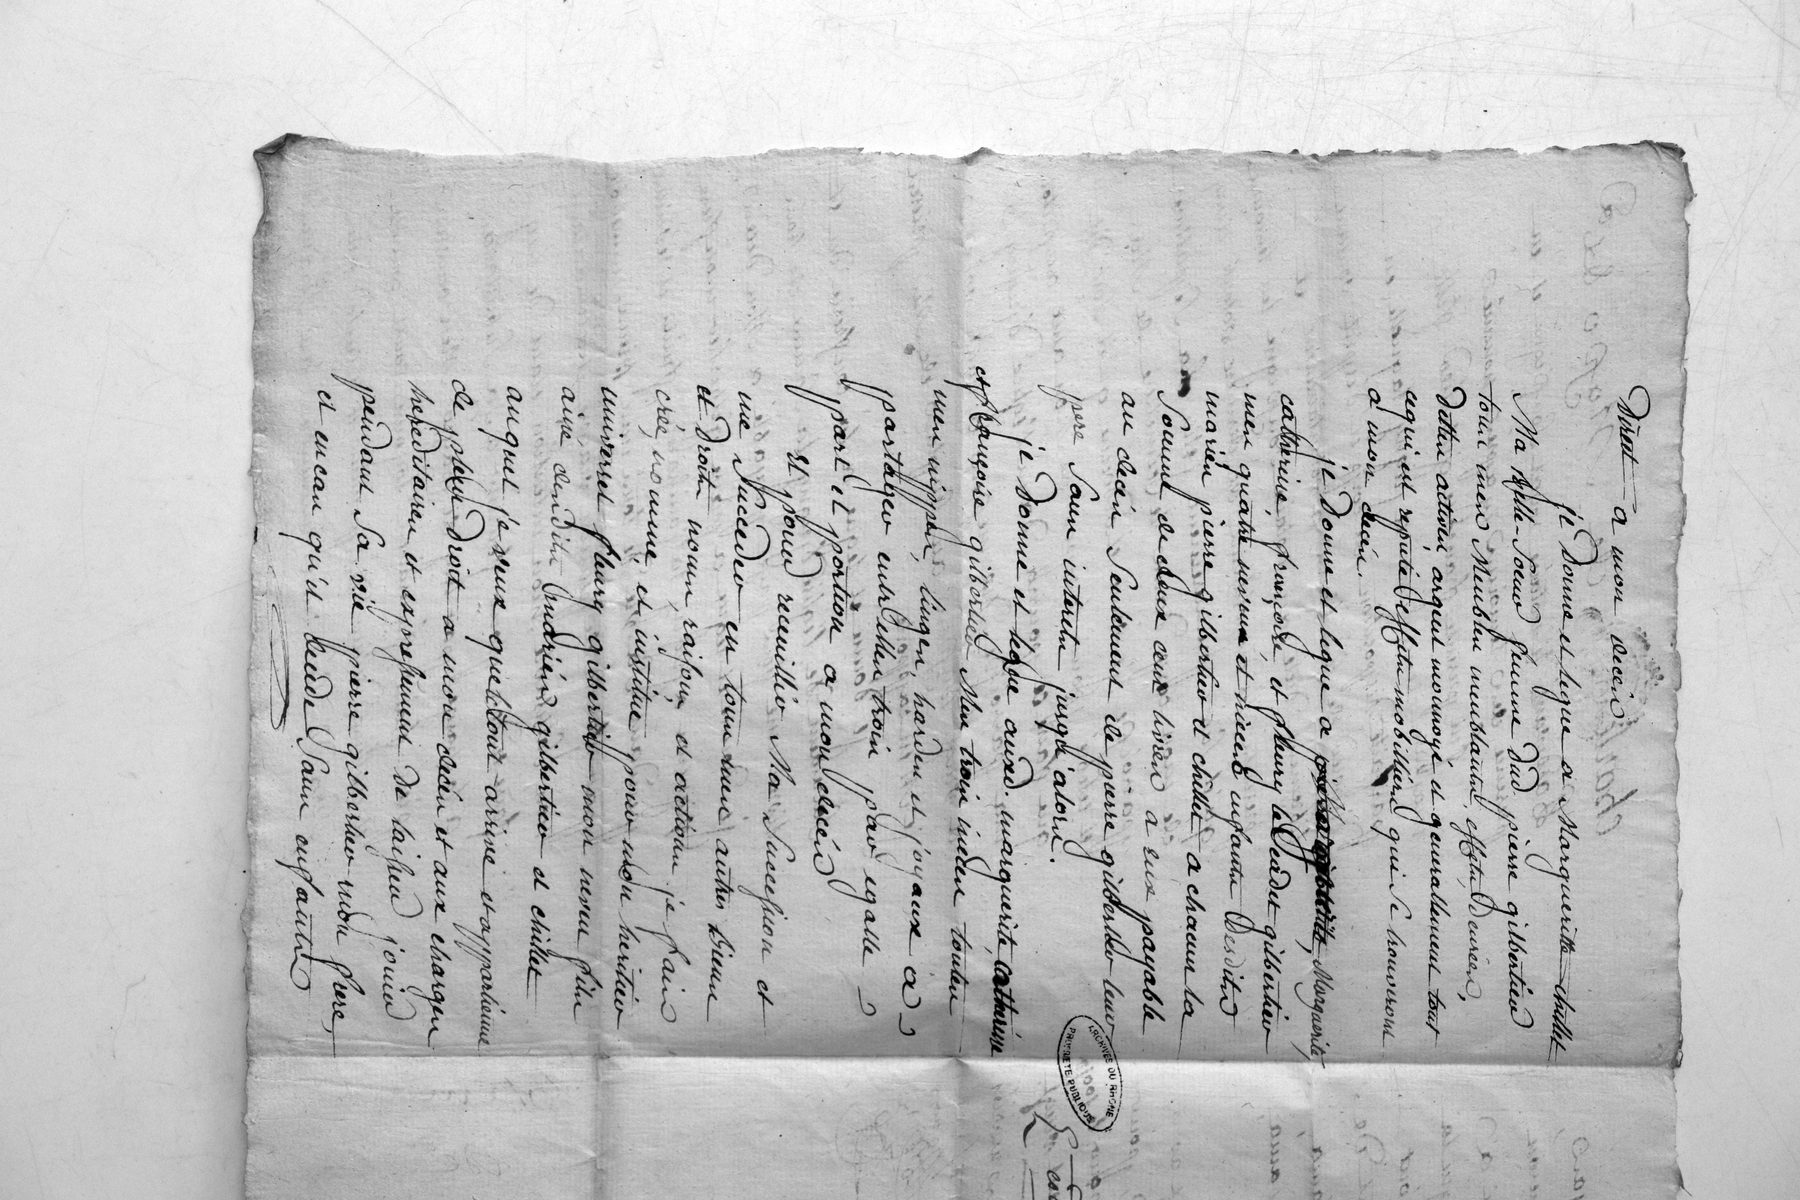 Diret a mon deceds
je Donne et legue a Marguerite chillet
Ma belle Soeur femme dud pierre gilbertier
tous mes Meubles meublants, effets, Denrées,
Dettes actives, argent monnoyé et generallement tout
cequi est reputé effets mobilliers qui se trouveront
a mon decés.
je Donne et legue a Marguerite,
catherine, françoise, et fleury gilbertier
mes quatre neveux et nieces enfants Desdits
mariés pierre gilbertier et chillet a chacun la
Somme de deux cent livres a eux payable
au decés Seulement de pierre gilbertier leur
pere Sans interets jusqu'alors.
je Donne et legue auxd. marguerite, Catherine
et françoise gilbertier Mes trois nieces toutes
mes nippes, linges, hardes et joyaux à
partager entr'elles trois par egalle
part et portion a mon decés
Et pour recueillir Ma Succession et
me Succeder en tous mes autres biens
et droits noms, raisons et actions je fais
crée, nomme, et institue pour mon heritier
universel fleury gilbertier mon neveu fils
ainé desdits mariés gilbertier et chillet
auquel je veux que le tout arrive et appartienne
de plein droit a mon decés et aux charges
hereditaires et expressement de laisser jouir
pendant Sa vie pierre gilbertier mon frere,
et en cas qu'il decede Sans enfants
ARCHIVES DU RHONE
PROPRIETE PUBLIQUE